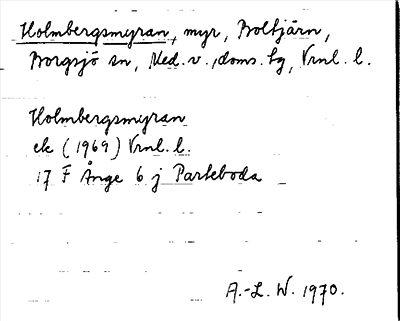 Holmbergsmyran, myr, Boltjärn,
Borgsjö sn, Med. v., doms. tg, Vrnl. l.
Holmbergsmyran
ek (1969) Vrnl. l.
17 F Ånge 6 j Parteboda
A.-L. W. 1970.